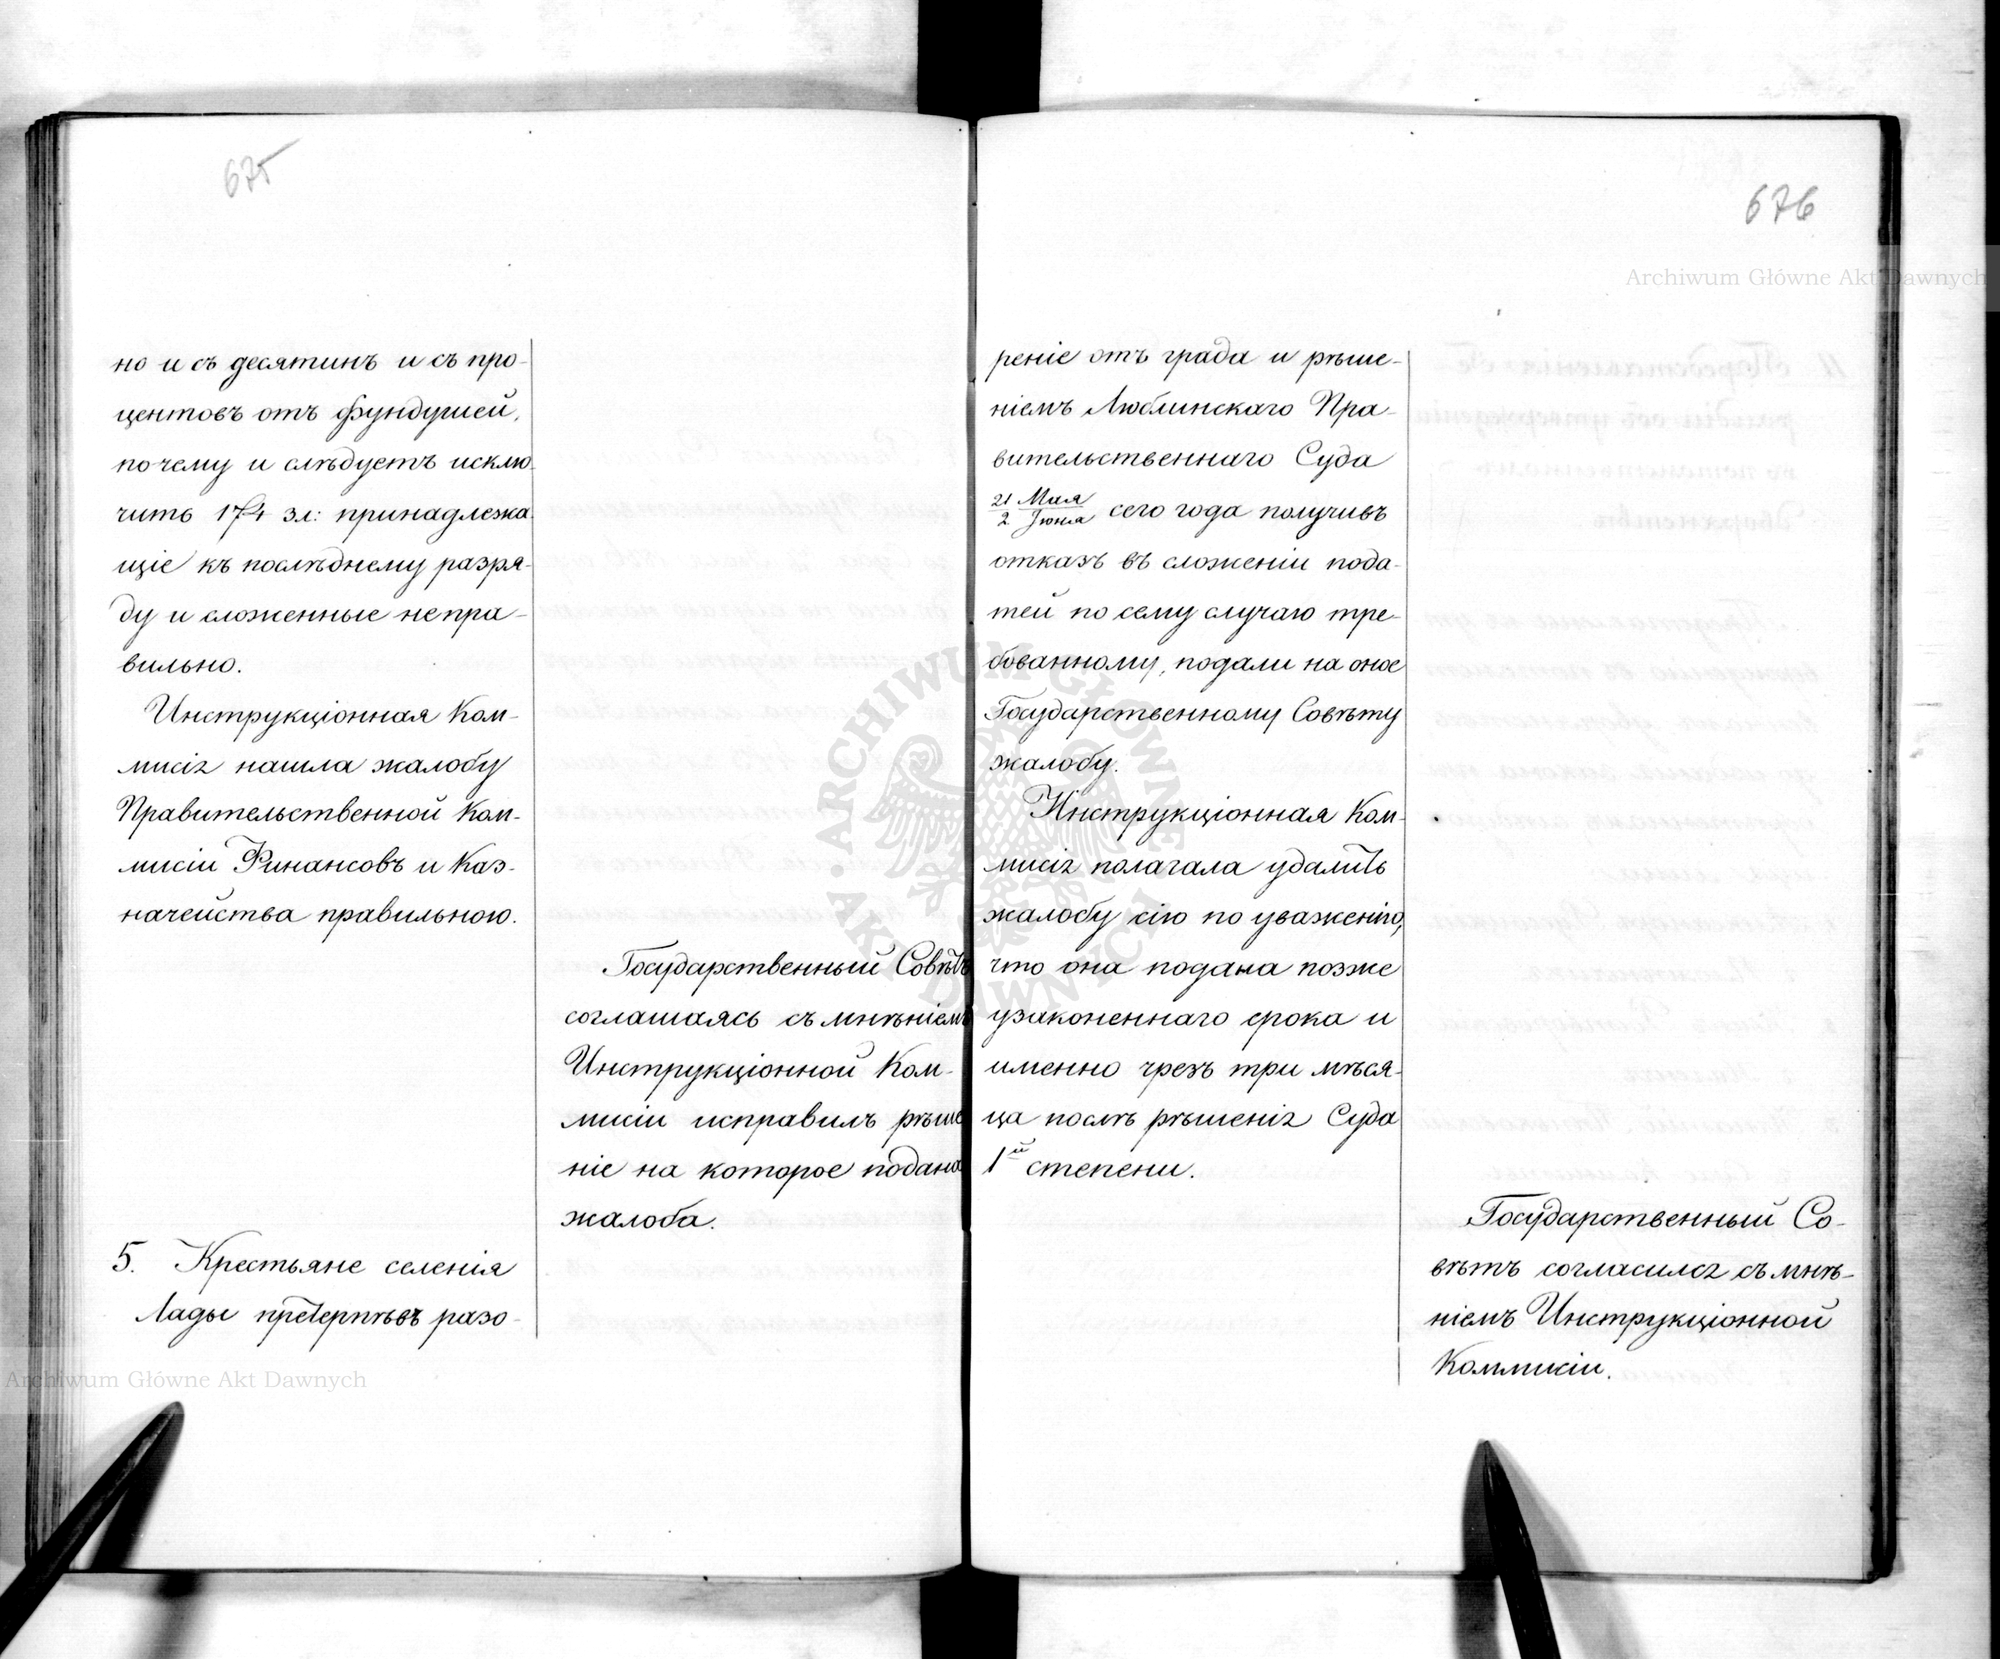 675
но и съ десятинъ и съ про-
центовъ отъ фундушей,
почему и слѣдуетъ исклю-
чить 174 зл: принадлежа-
щіе къ послѣднему разря-
ду и сложенные непра-
вильно.
Инструкціонная Ком-
мисія нашла жалобу
Правительственной Ком-
мисіи Финансовъ и Каз-
начейства правильною.
Государственный Совѣтъ
соглашаясь съ мнѣніемъ
Инструкціонной Ком-
мисіи исправилъ рѣше
ніе на которое подана
жалоба.
5. Крестьяне селенія
Лады претерпѣвъ разо-
676
реніе отъ града и рѣше-
ніемъ Люблинскаго Пра-
вительственнаго Суда
21 Мая
2 Іюня сего года получивъ
отказъ въ сложеніи пода-
тей по сему случаю тре-
бованному, подали на оное
Государственному Совѣту
жалобу.
Инструкціонная Ком-
мисія полагала удалить
жалобу сію по уваженію,
что она подана позже
узаконеннаго срока и
именно чрезъ три мѣся-
ца послѣ рѣшенія Суда
1й степени.
Государственный Со-
вѣтъ согласился съ мнѣ-
ніемъ Инструкціонной
Коммисіи.
Archiwum Główne Akt Dawnych
Archiwum Główne Akt Dawnych
ARCHIWUM GŁÓWNE AKT DAWNYCH